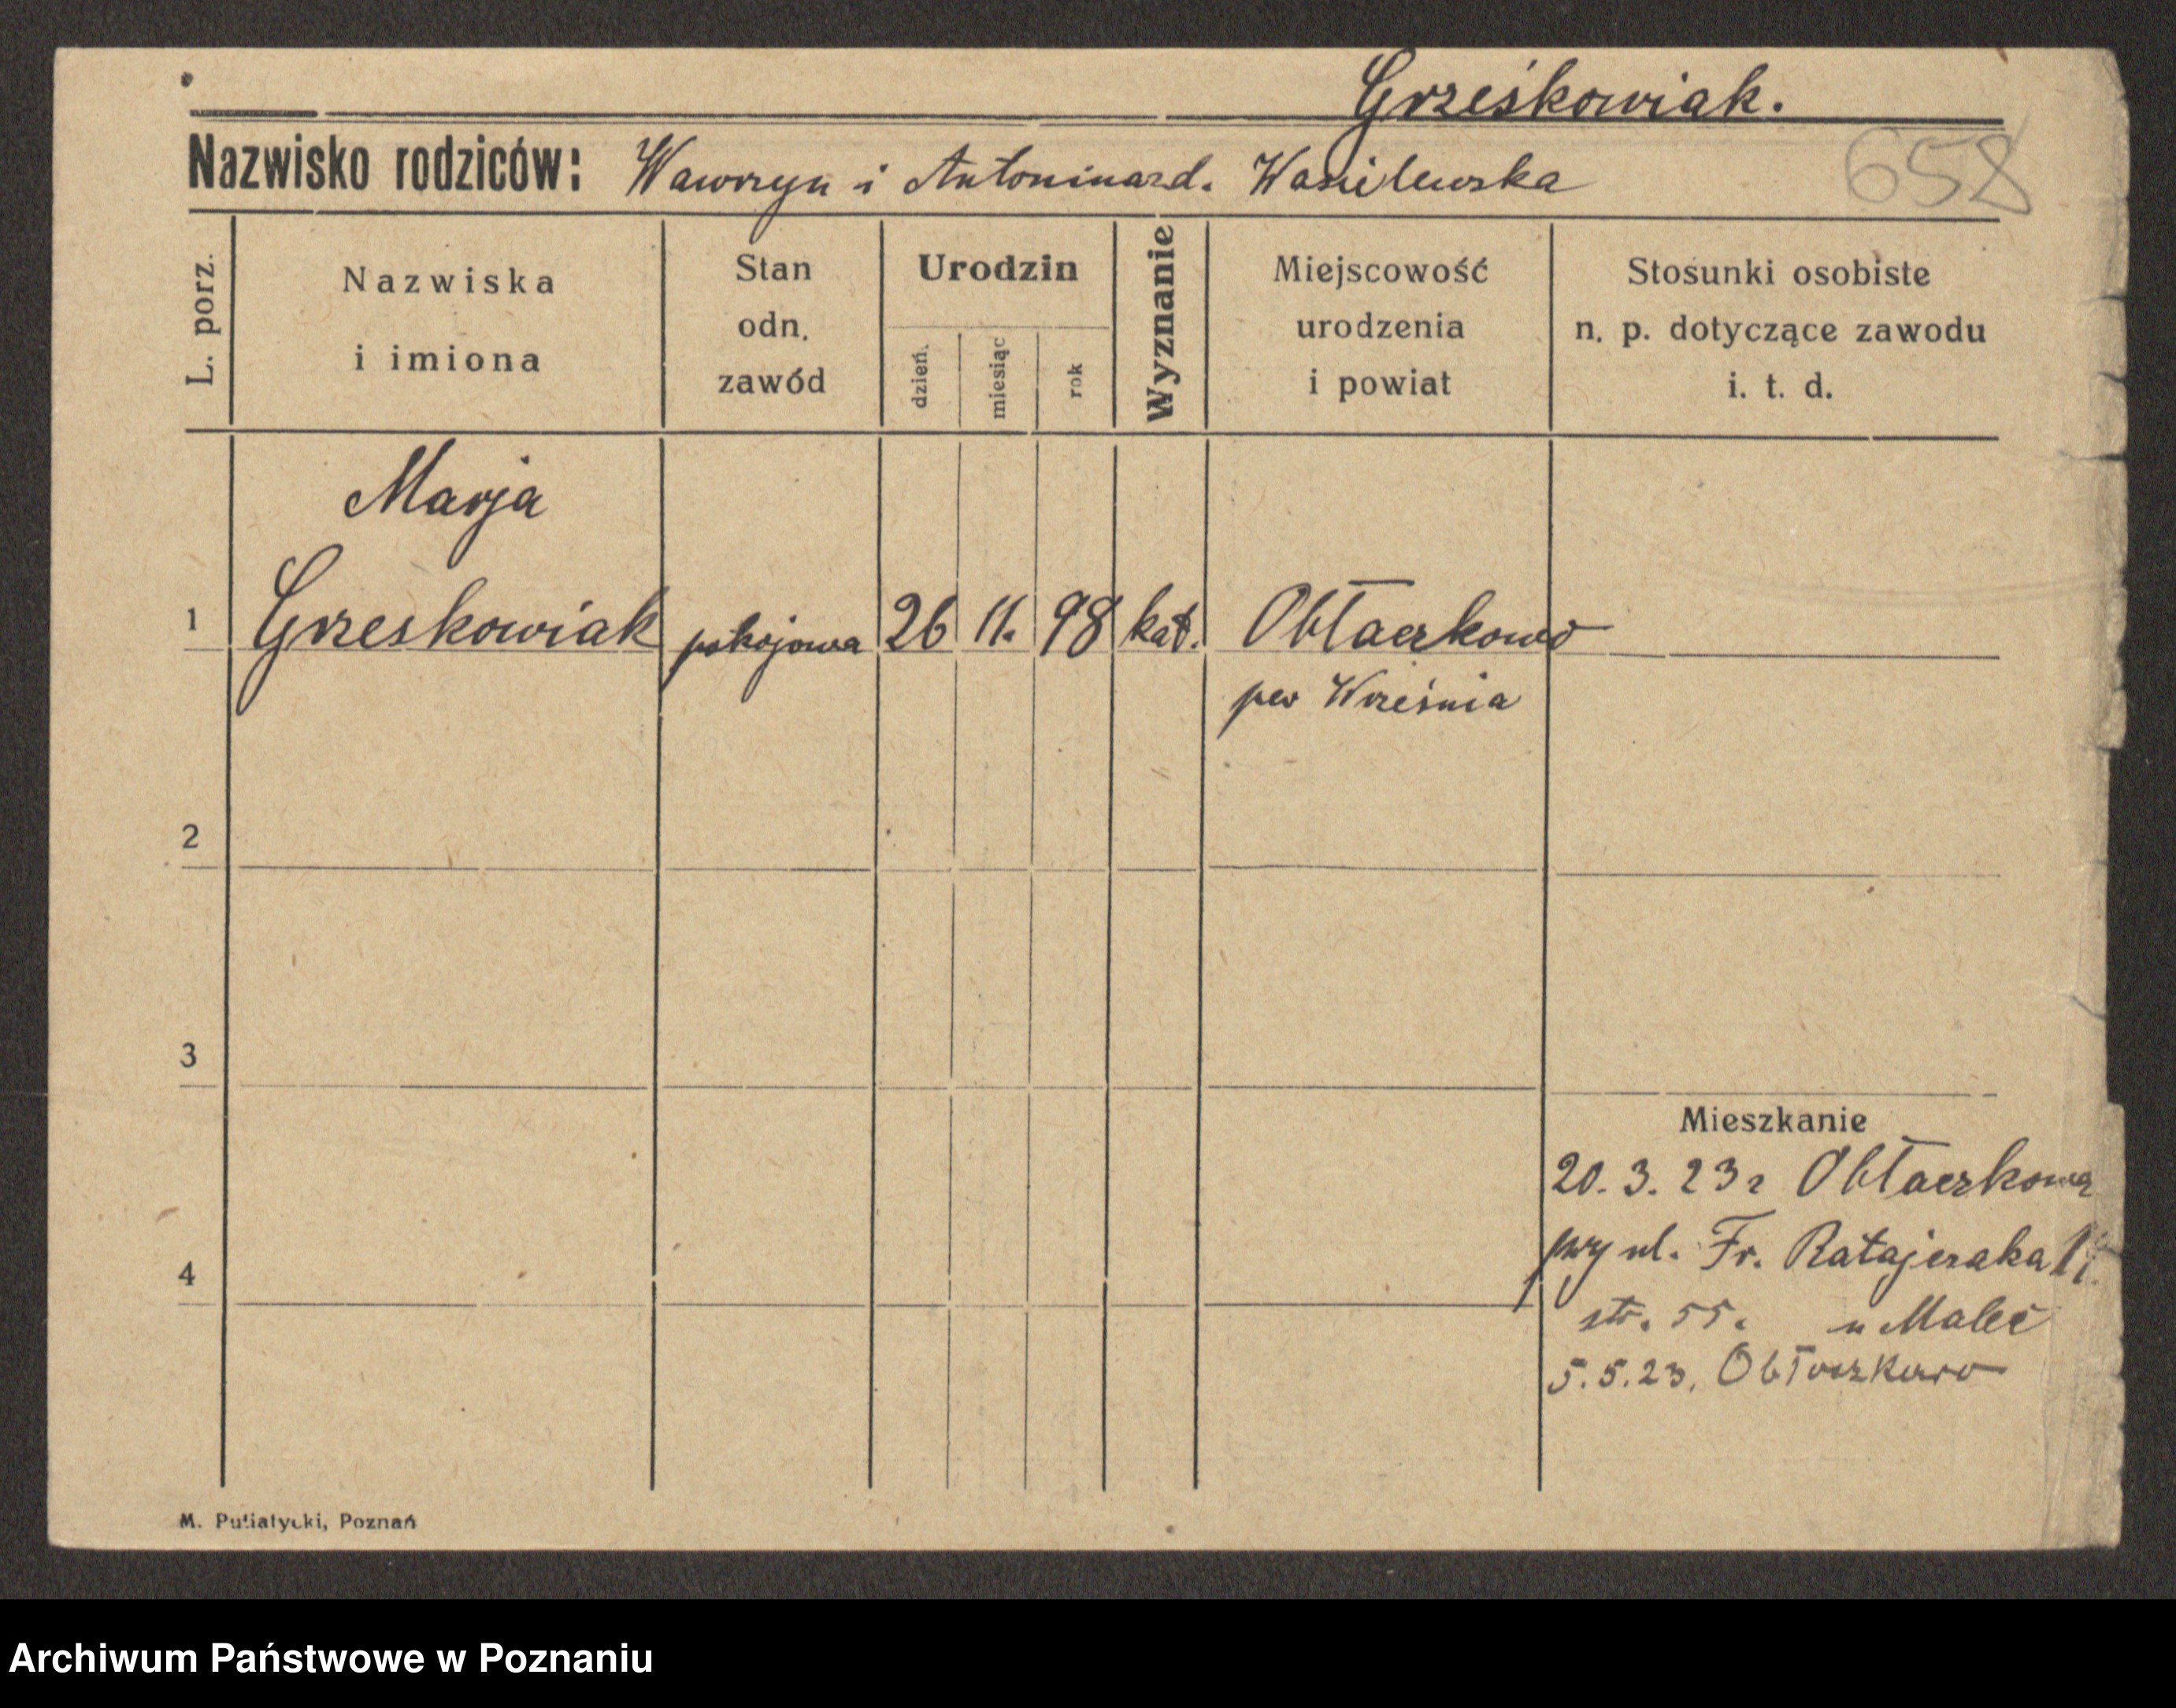 Grześkowiak.
Nazwisko rodziców: Wawrzyn i Antonina zd. Wasilewska
658
L. porz.
Nazwiska
i imiona
Stan
odn.
zawód
Urodzin
dzień.
miesiąc
rok
Wyznanie
Miejscowość
urodzenia
i powiat
Stosunki osobiste
n. p. dotyczące zawodu
i. t. d.
Marja
1 Grzeskowiak pokojowa 26 11. 98 kat. Obłaczkowo
pow Września
2
3
Mieszkanie
20. 3. 23 r Obłaczkowa
przy ul. Fr. Ratajczaka
4
str. 55. u Malec
5.5.23. Obłoszkowo
M. Putiatycki, Poznań
Archiwum Państwowe w Poznaniu